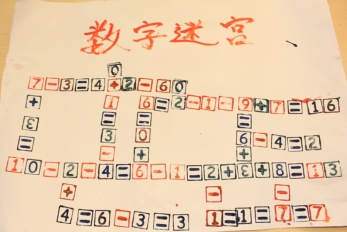 数字迷宫
0
7-3=4+2-60
+ 1 6=2-1-9+7=16
3 = 0 =
= - + 6-4=2
10-2-4=6-1=2+3+8=13
+ - - -
4=6-3=3 1=1=7=7